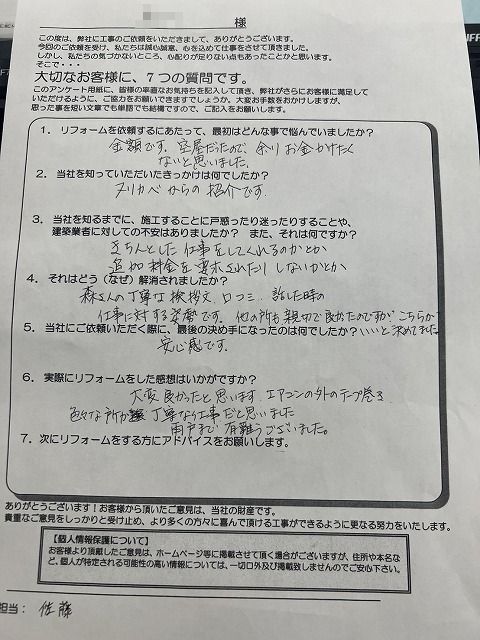 様
この度は、弊社に工事のご依頼をいただきまして、ありがとうございます。
今回のご依頼を受け、私たちは誠心誠意、心を込めて仕事をさせて頂きました。
しかし、私たちの気づかないところ、心配りが足りない点もあったことかと思います。
そこで・・・
大切なお客様に、7つの質問です。
このアンケート用紙に、皆様の率直なお気持ちを記入して頂き、弊社がさらにお客様に満足して
いただけるように、ご協力をお願いできますでしょうか。大変お手数をおかけしますが、
思った事を短い文章でも単語でも結構ですので、ご記入をお願いします。
1. リフォームを依頼するにあたって、最初はどんな事で悩んでいましたか?
金額です。空屋だったので、余りお金かけたく
ないと思いました。
2. 当社を知っていただいたきっかけは何でしたか?
ヌリカベからの紹介です。
3. 当社を知るまでに、施工することに戸惑ったり迷ったりすることや、
建築業者に対しての不安はありましたか? また、それは何ですか?
きちんとした仕事をしてくれるのかとか
追加料金を要求されたりしないかとか
4. それはどう(なぜ)解消されましたか?
森さんの丁寧な挨拶文、口コミ、話した時の
仕事に対する姿勢です。他の所も親切で良かったのですが、こちらが
5. 当社にご依頼いただく際に、最後の決め手になったのは何でしたか?いいと決めてました
安心感です。
6. 実際にリフォームをした感想はいかがですか?
大変良かったと思います。エアコンの外のテープ巻き
色々な所が 丁寧な工事だと思いました
雨戸まで有難うございました。
7. 次にリフォームをする方にアドバイスをお願いします。
ありがとうございます!お客様から頂いたご意見は、当社の財産です。
貴重なご意見をしっかりと受け止め、より多くの方々に喜んで頂ける工事ができるように更なる努力をいたします。
【個人情報保護について】
お客様より頂戴したご意見は、ホームページ等に掲載させて頂く場合がございますが、住所や本名な
ど、個人が特定される可能性の高い情報については、一切口外及び掲載致しませんのでご安心下さい。
担当: 佐藤